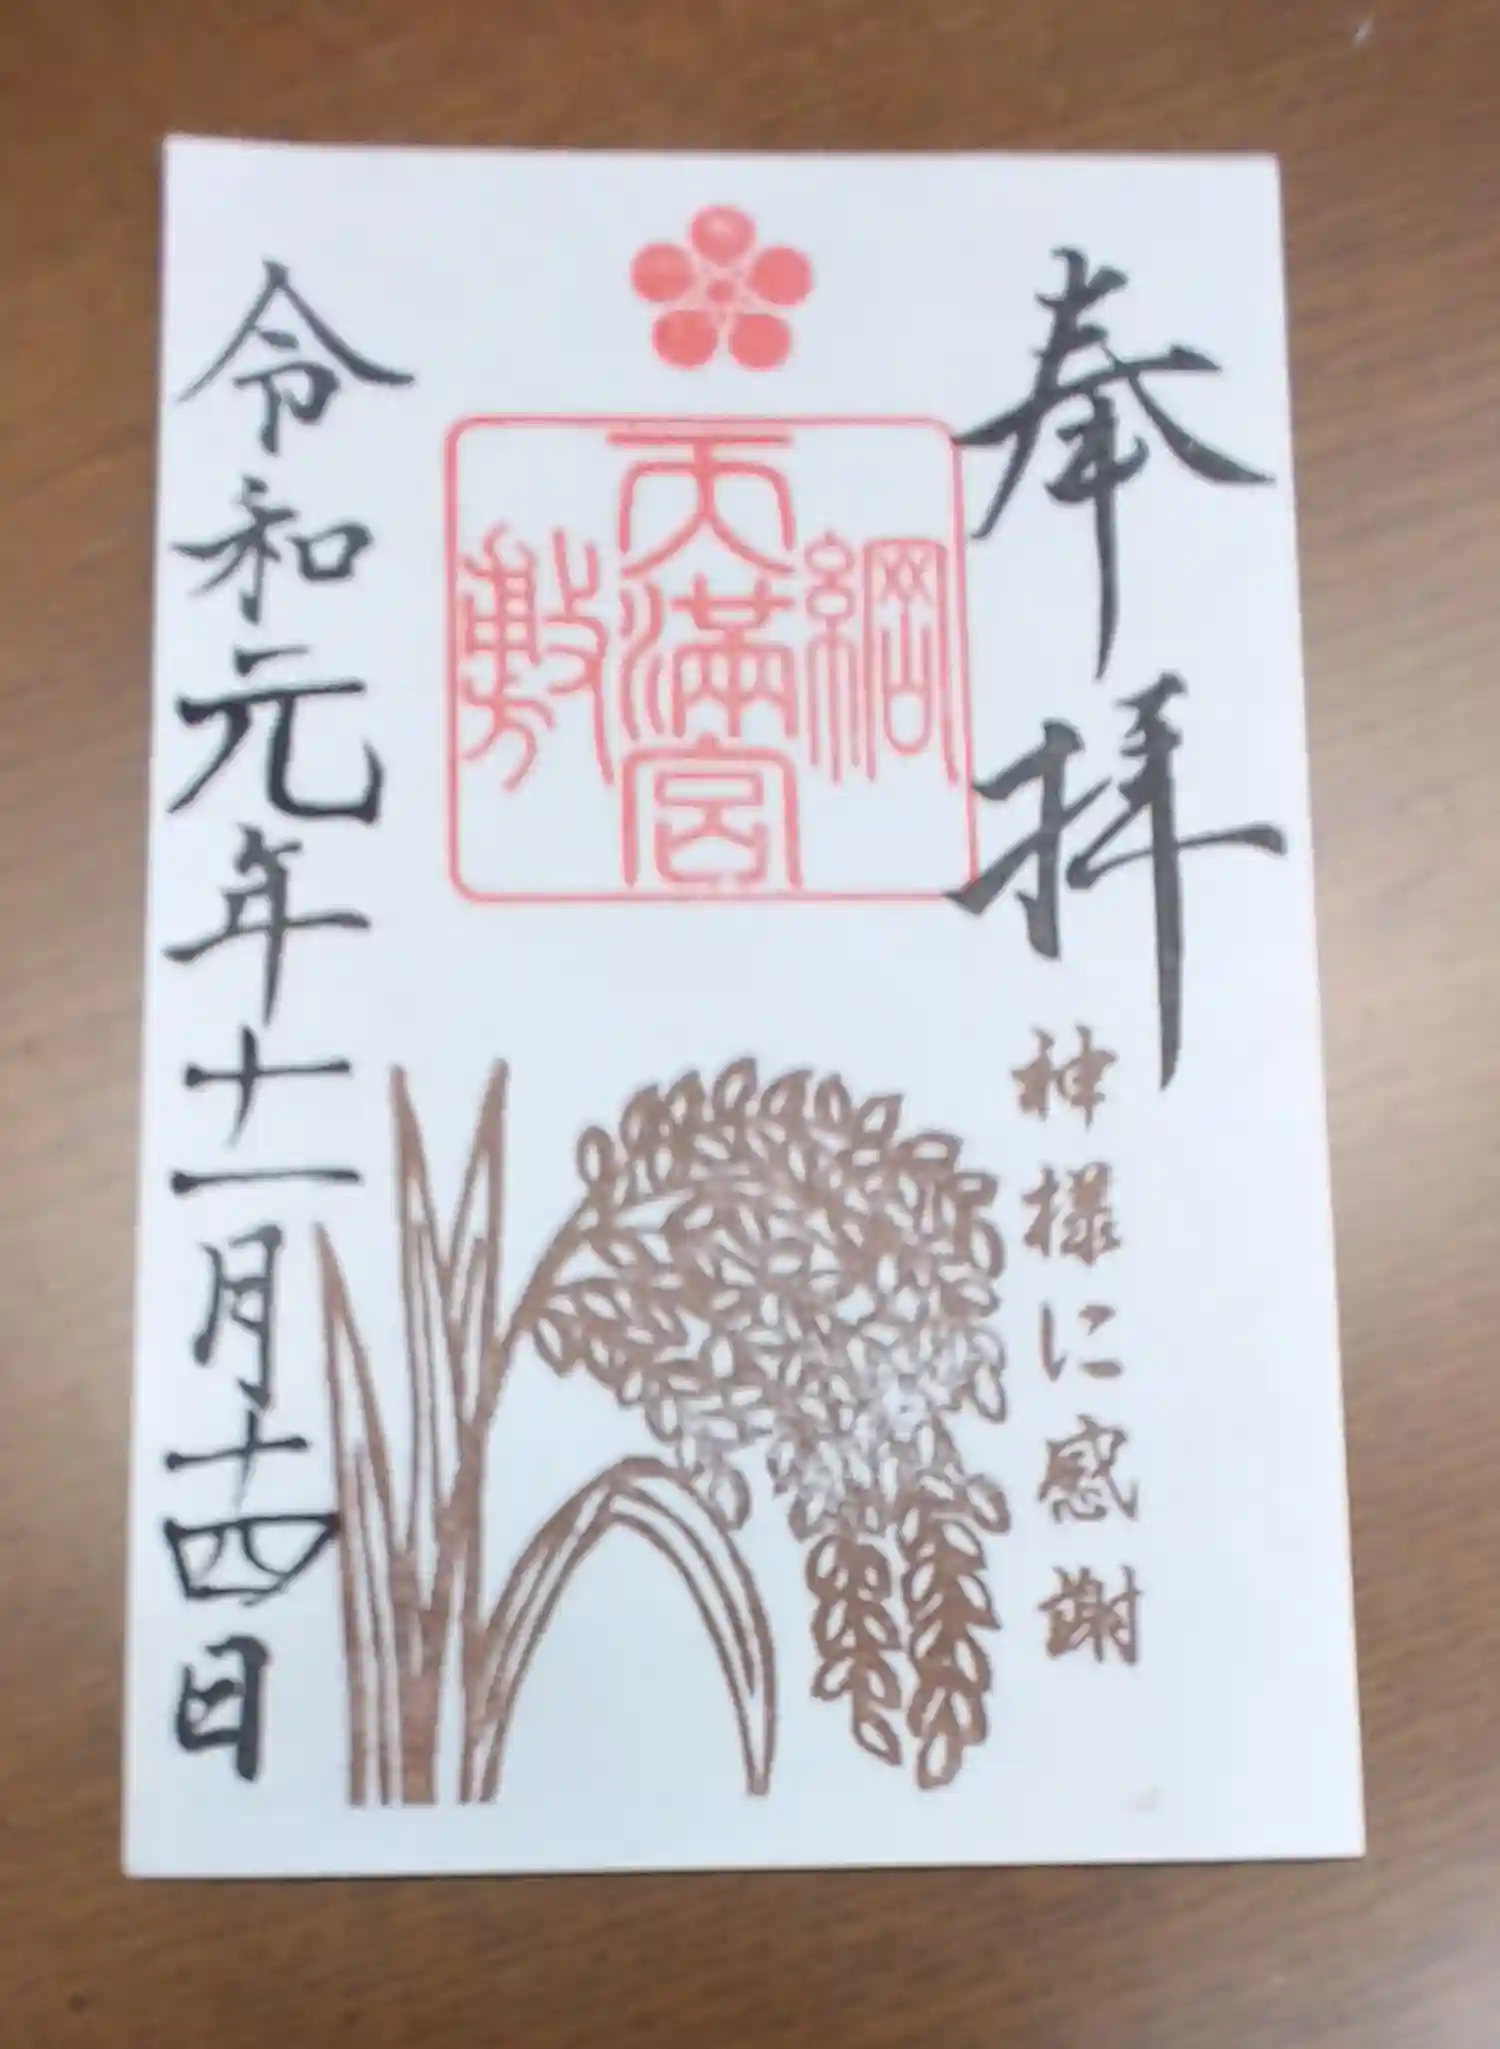 奉拝
神様に感謝
綱
天満宮
敷
令和元年十一月十四日